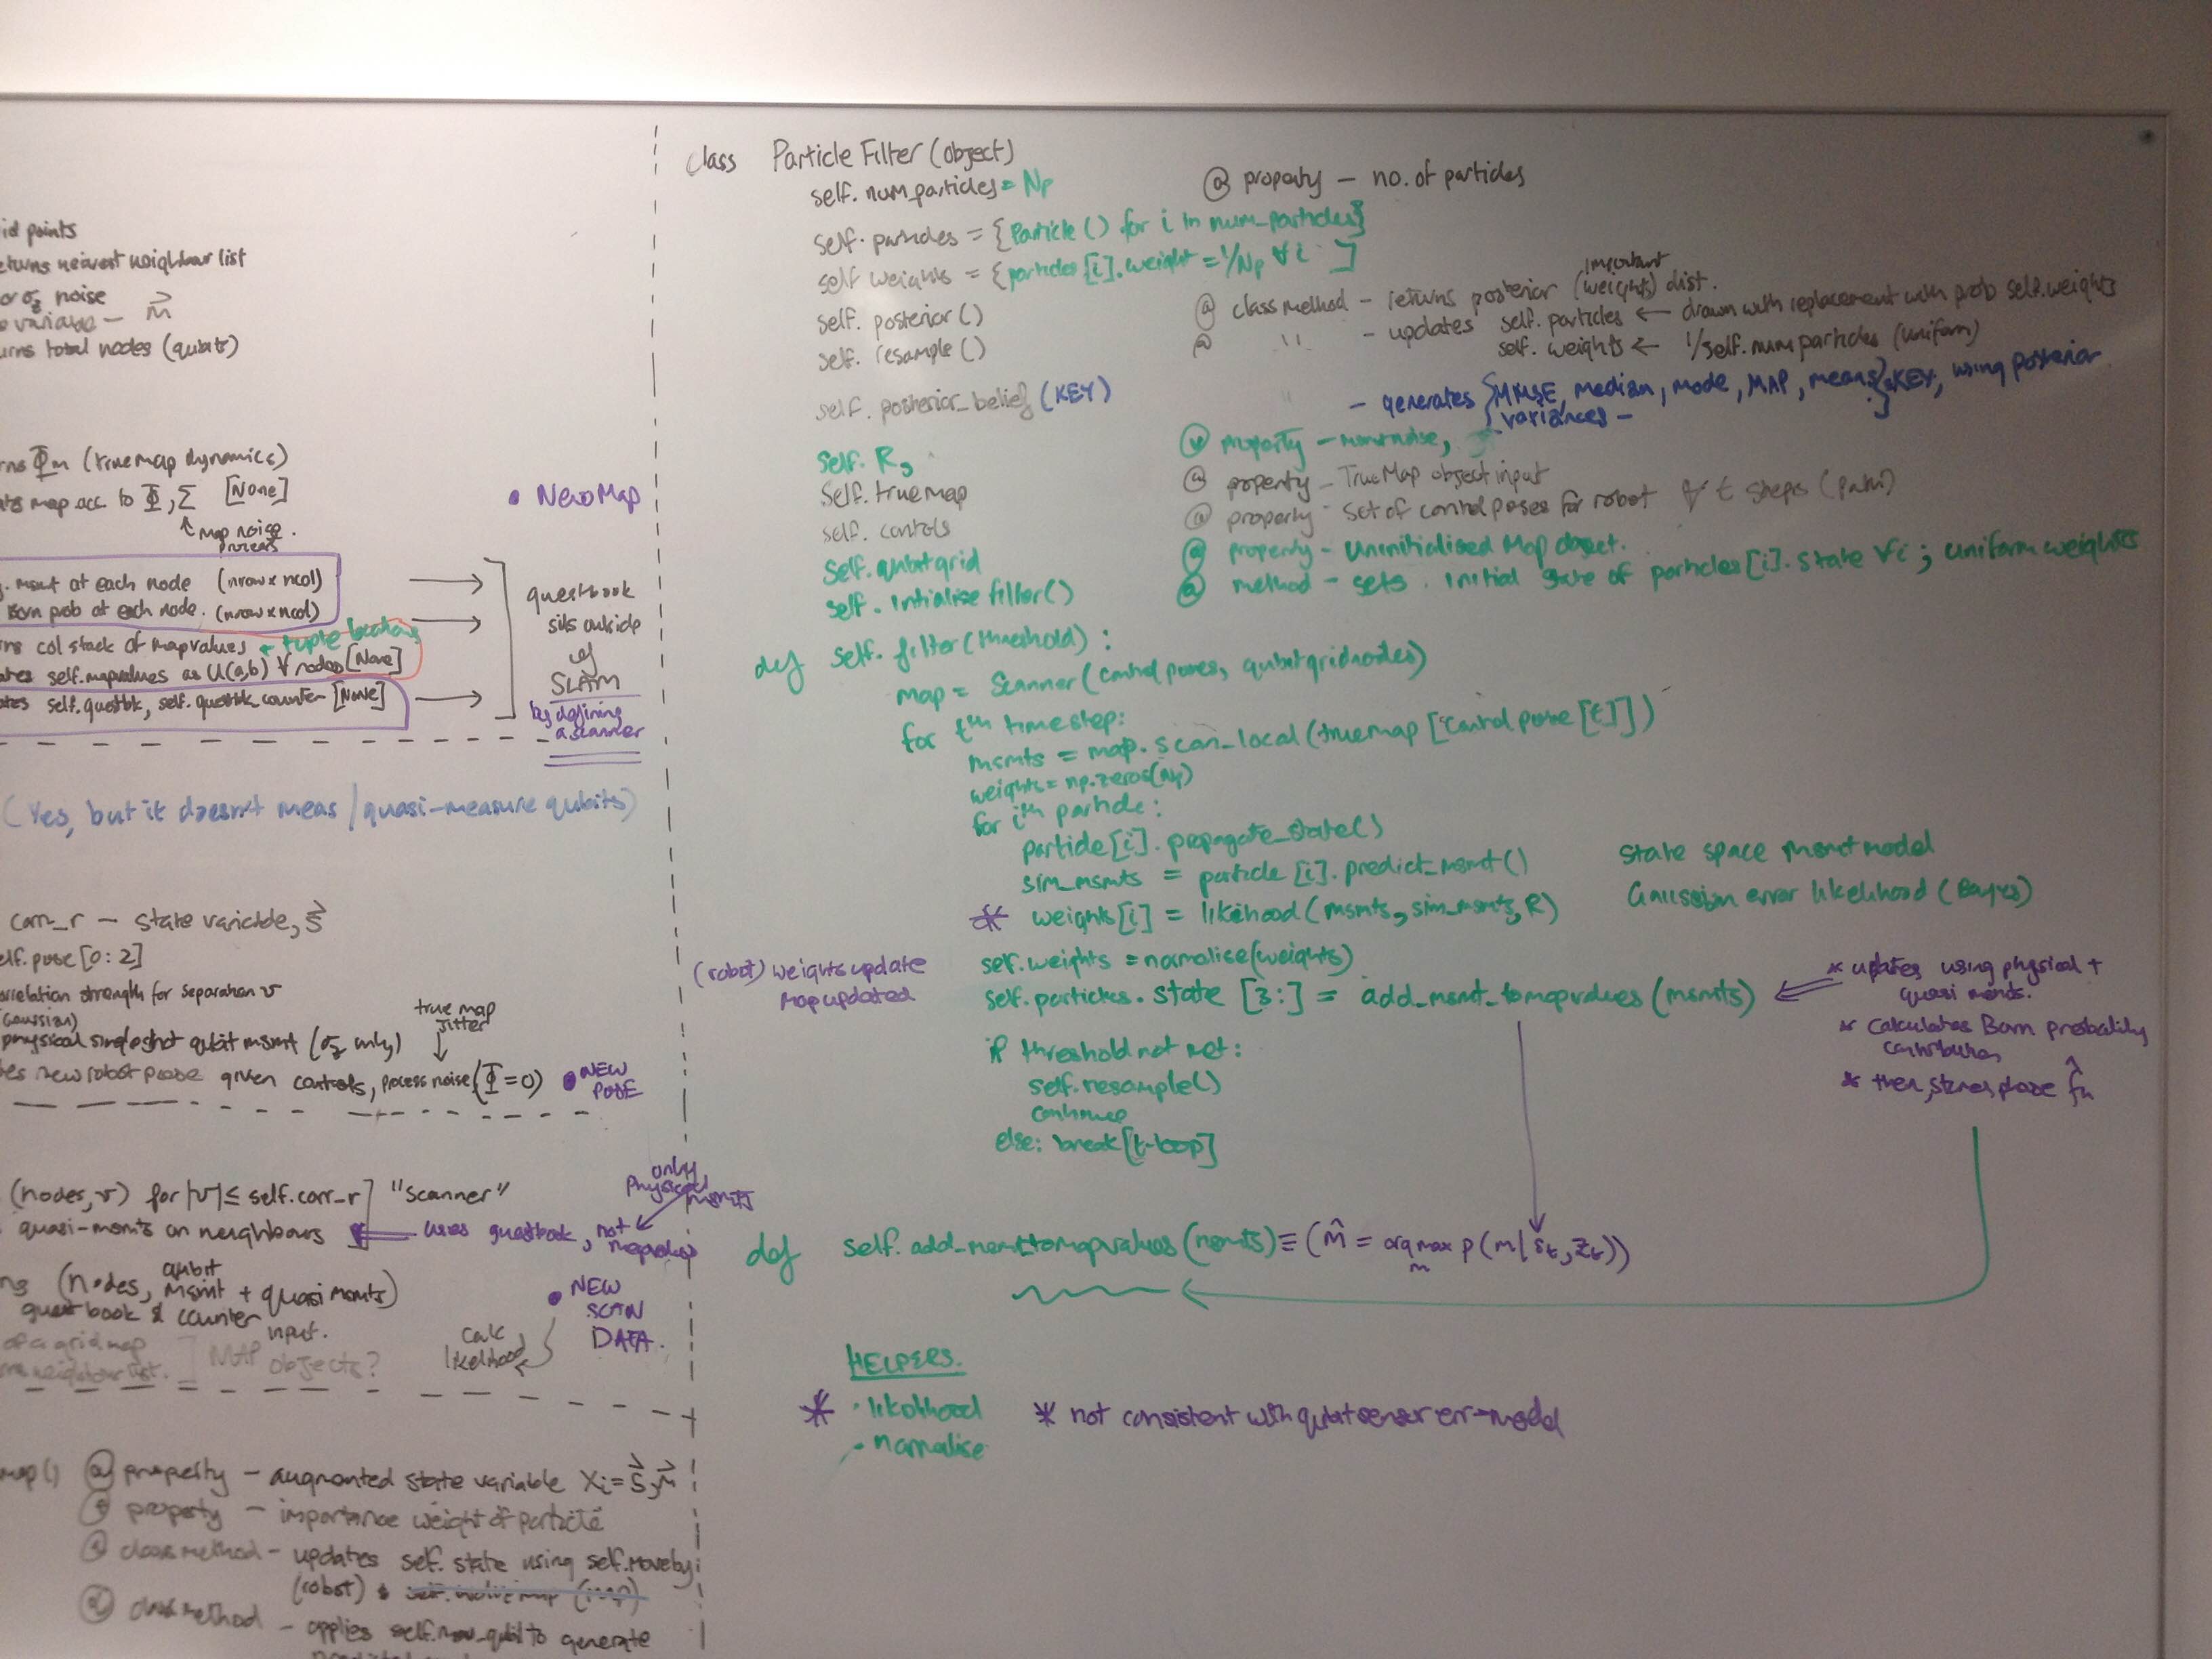 id points
eturns nearest neighbour list
or σz noise
variable — m
urns total nodes (qubits)
rns Φm (true map dynamics)
map acc. to Φ, Σ [None]
↑ Map noise process.
• New Map
. msmt at each node (nrow x ncol)
Born prob at each node. (nrow x ncol)
rns col stack of mapvalues ← tuple locations
ates self.mapvalues as U(a,b) ∀ nodes [None]
ates self.questbk, self.questbk_counter [None]
questbook
sits outside
of
SLAM
by defining
a scanner
(Yes, but it doesn't meas/quasi-measure qubits)
corr_r — state variable, s
elf.pose [0:2]
orrelation strength for separation v
(Gaussian)
physical singleshot qubit msmt (σz only)
true map
Jitter
new robot pose given controls, process noise (Φ=0)
• NEW
POSE
(nodes, v) for |v| ≤ self.corr_r] "scanner"
only
physical
msmts
quasi-msmts on neighbours
uses questbook, not
mapvalues
(nodes, qubit msmt + quasi msmts)
questbook & counter
input.
• NEW
SCAN
DATA.
calc
likelihood
of a grid map
neighbour list.
MAP objects?
map() @ property — augmented state variable Xi = s, m
@ property — importance weight of particle
@ class method — updates self.state using self.moveby
(robot) &
@ class method — applies to generate
class Particle Filter (object)
self.num_particles = Np @ property — no. of particles
self.particles = {Particle() for i in num_particles}
self weights = {particles[i].weight = 1/Np ∀ i ]
self. posterior() @ class method — returns posterior (important weights) dist.
self. resample() @ " — updates self.particles ← drawn with replacement with prob self.weights
self.weights ← 1/self.num particles (uniform)
self. posterior_belief (KEY) " — generates {MMSE, median, mode, MAP, means, variances — } KEY, using posterior
self. R, @ property — msmt noise,
self. true map @ property — TrueMap object input
self. controls @ property — set of control poses for robot ∀ t steps (path)
self.qubitgrid @ property — Uninitialised Map object.
self. intialise filter() @ method — sets. initial state of particles[i].state ∀i ; uniform weights
def self. filter (threshold) :
map = Scanner (control poses, qubitgridnodes)
for tth timestep:
msmts = map. scan_local (truemap [control pose [t]])
weights = np.zeros(Np)
for ith particle:
particle[i]. propagate_state()
sim_msmts = particle [i]. predict_msmt() State space msmt model
* weights[i] = likelihood (msmts, sim_msmts, R) Gaussian error likelihood (Bayes)
(robot) weights update self.weights = normalise(weights)
Map updated self.particles. state [3:] = add_msmt_to mapvalues (msmts)
* updates using physical +
quasi msmts.
* Calculates Born probability
contribution
* then, stores phase f̂n
if threshold not met:
self.resample()
continue
else: break [t-loop]
def self. add_msmt_to mapvalues (msmts) ≡ (m̂ = arg max m p(m|st, zt))
HELPERS.
* • likelihood * not consistent with qubit sensor err-model
- normalise